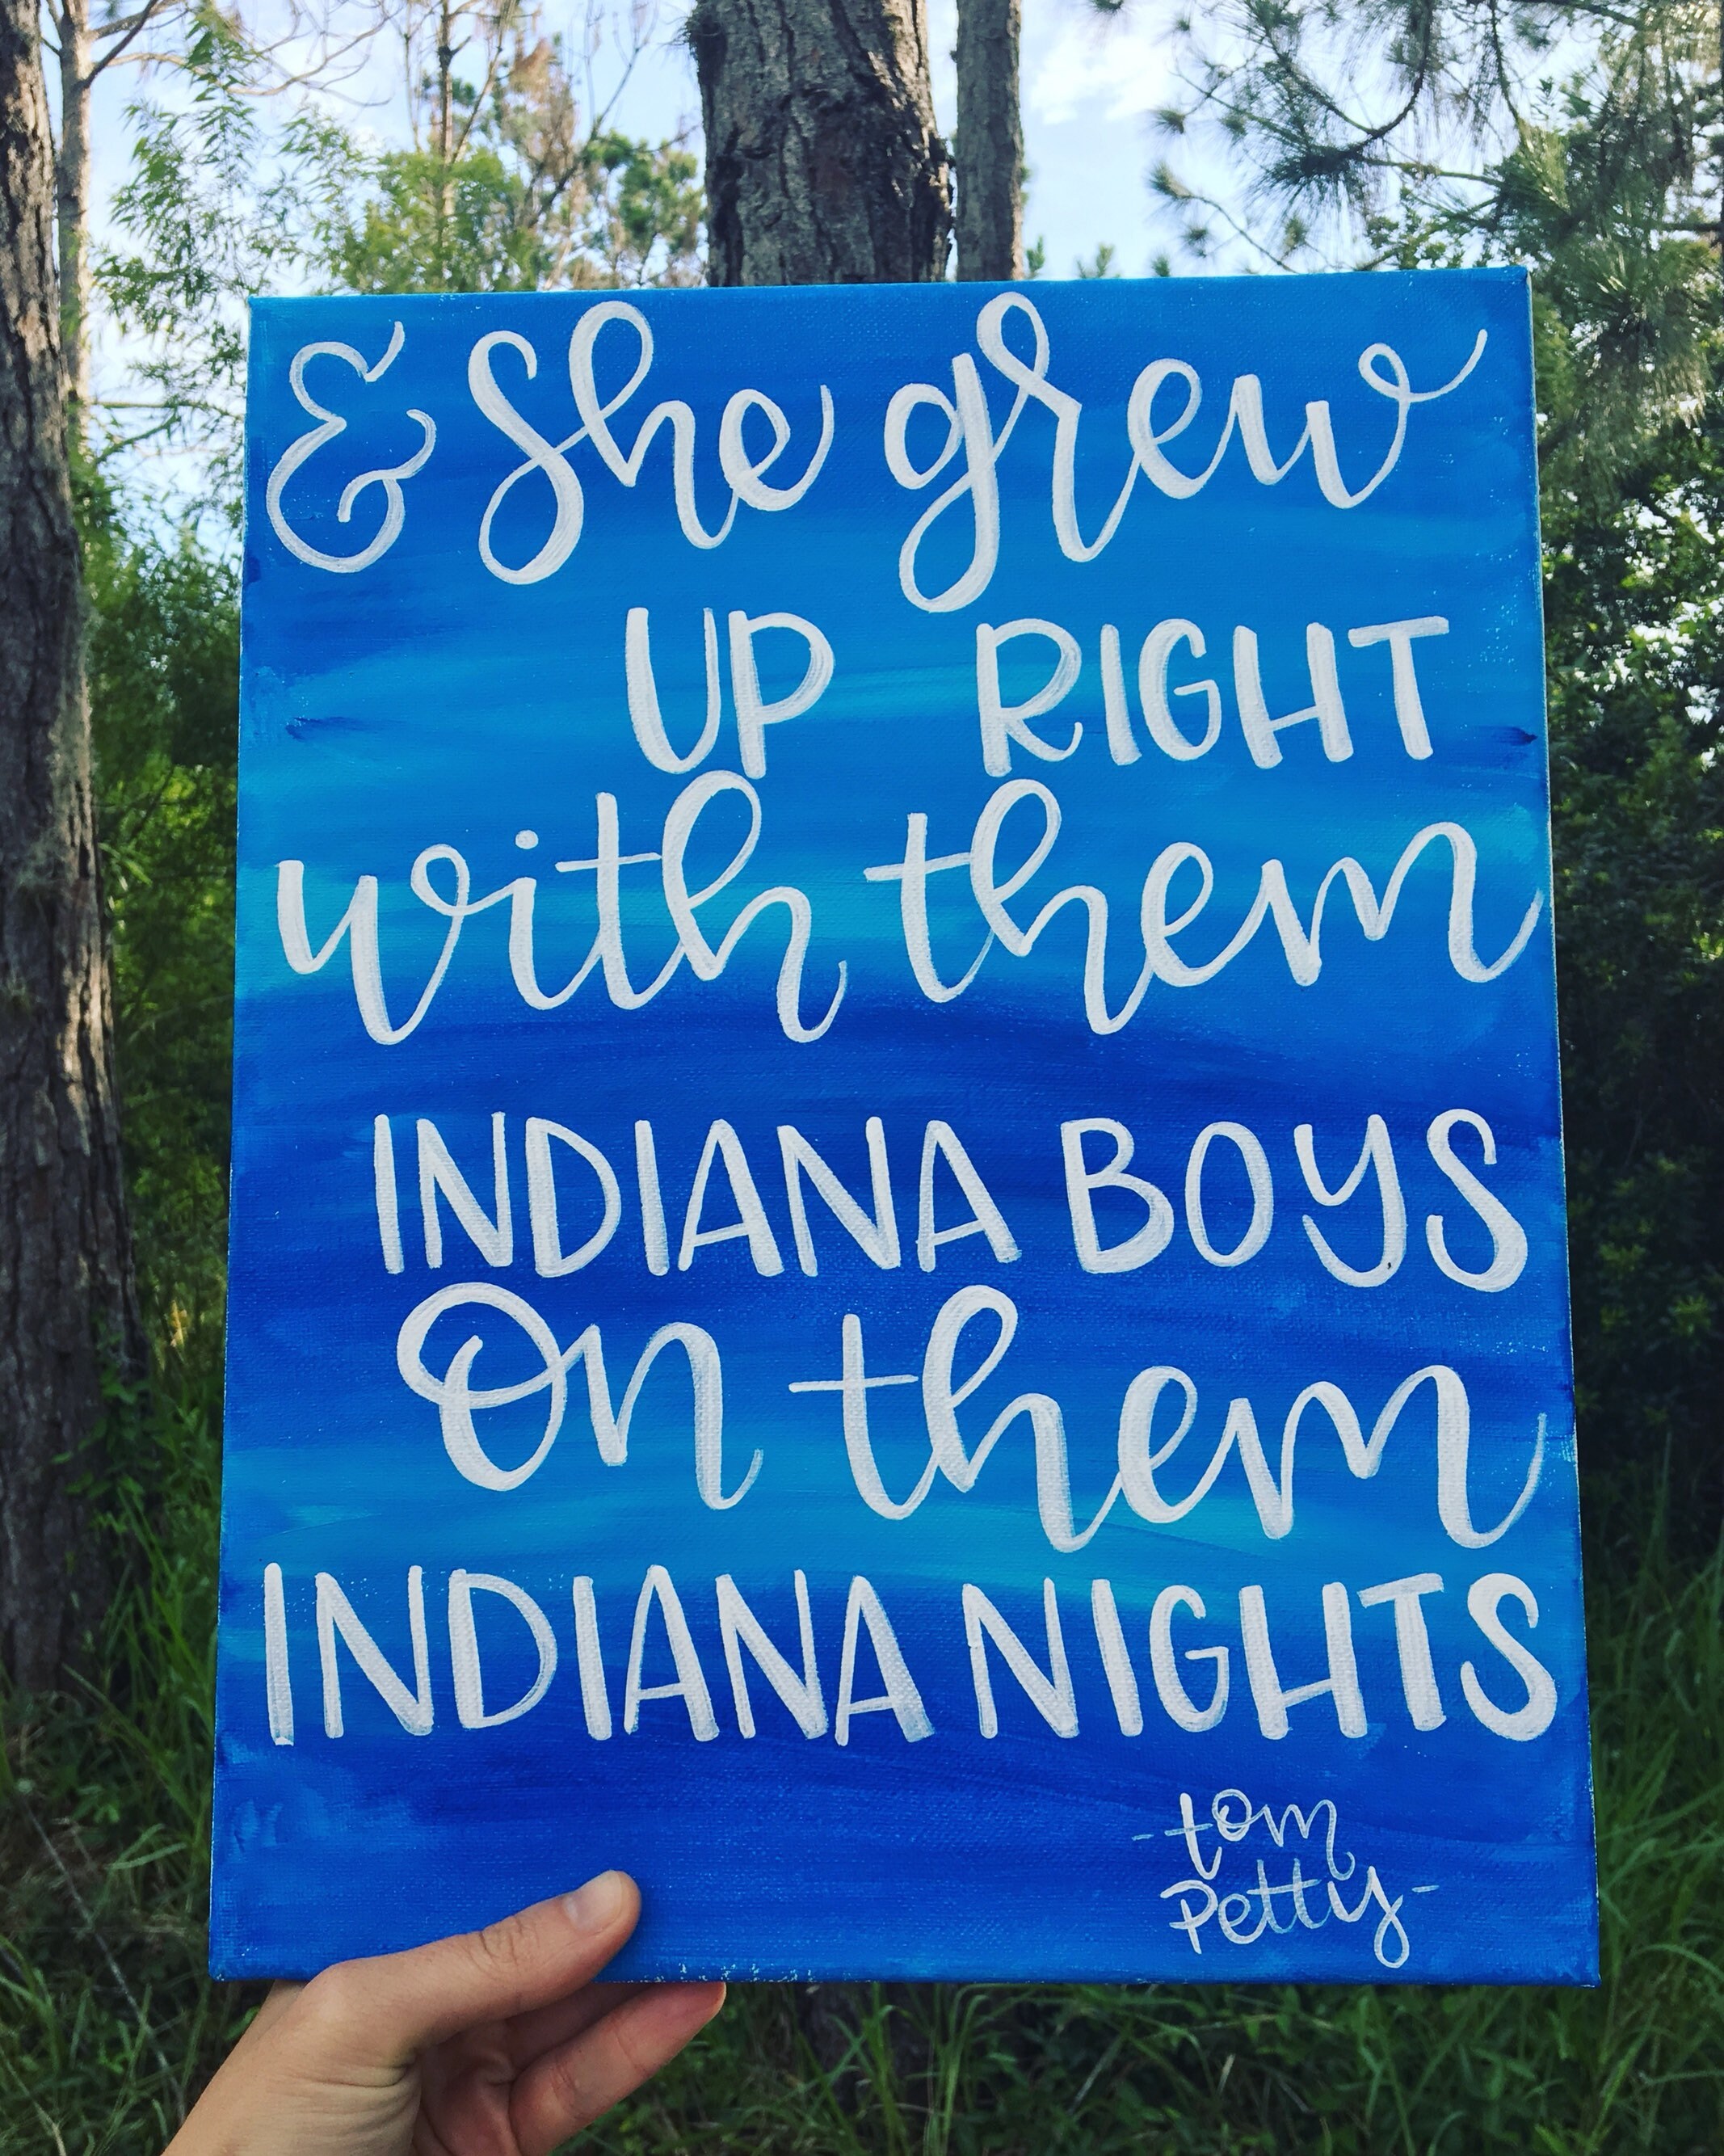 & She grew
UP RIGHT
with them
INDIANA BOYS
On them
INDIANA NIGHTS
-tom
Petty-